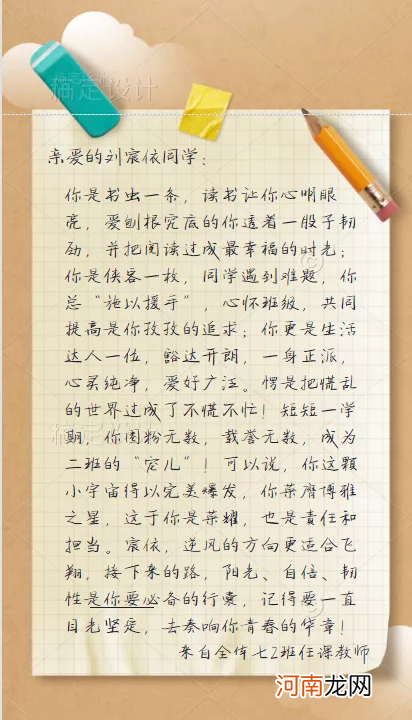 搞定设计
亲爱的刘宸依同学：
你是书虫一条，读书让你心明眼
亮，爱刨根究底的你透着一股子韧
劲，并把阅读过成最幸福的时光；
你是侠客一枚，同学遇到难题，你
总“施以援手”，心怀班级，共同
提高是你孜孜的追求；你更是生活
达人一位，豁达开朗，一身正派，
心灵纯净，爱好广泛。愣是把慌乱
的世界过成了不慌不忙！短短一学
期，你圈粉无数，载誉无数，成为
二班的“宠儿”！可以说，你这颗
小宇宙得以完美爆发，你荣膺博雅
之星，这于你是荣耀，也是责任和
担当。宸依，逆风的方向更适合飞
翔，接下来的路，阳光、自信、韧
性是你要必备的行囊，记得要一直
目光坚定，去奏响你青春的华章！
来自全体七2班任课教师
河南龙网